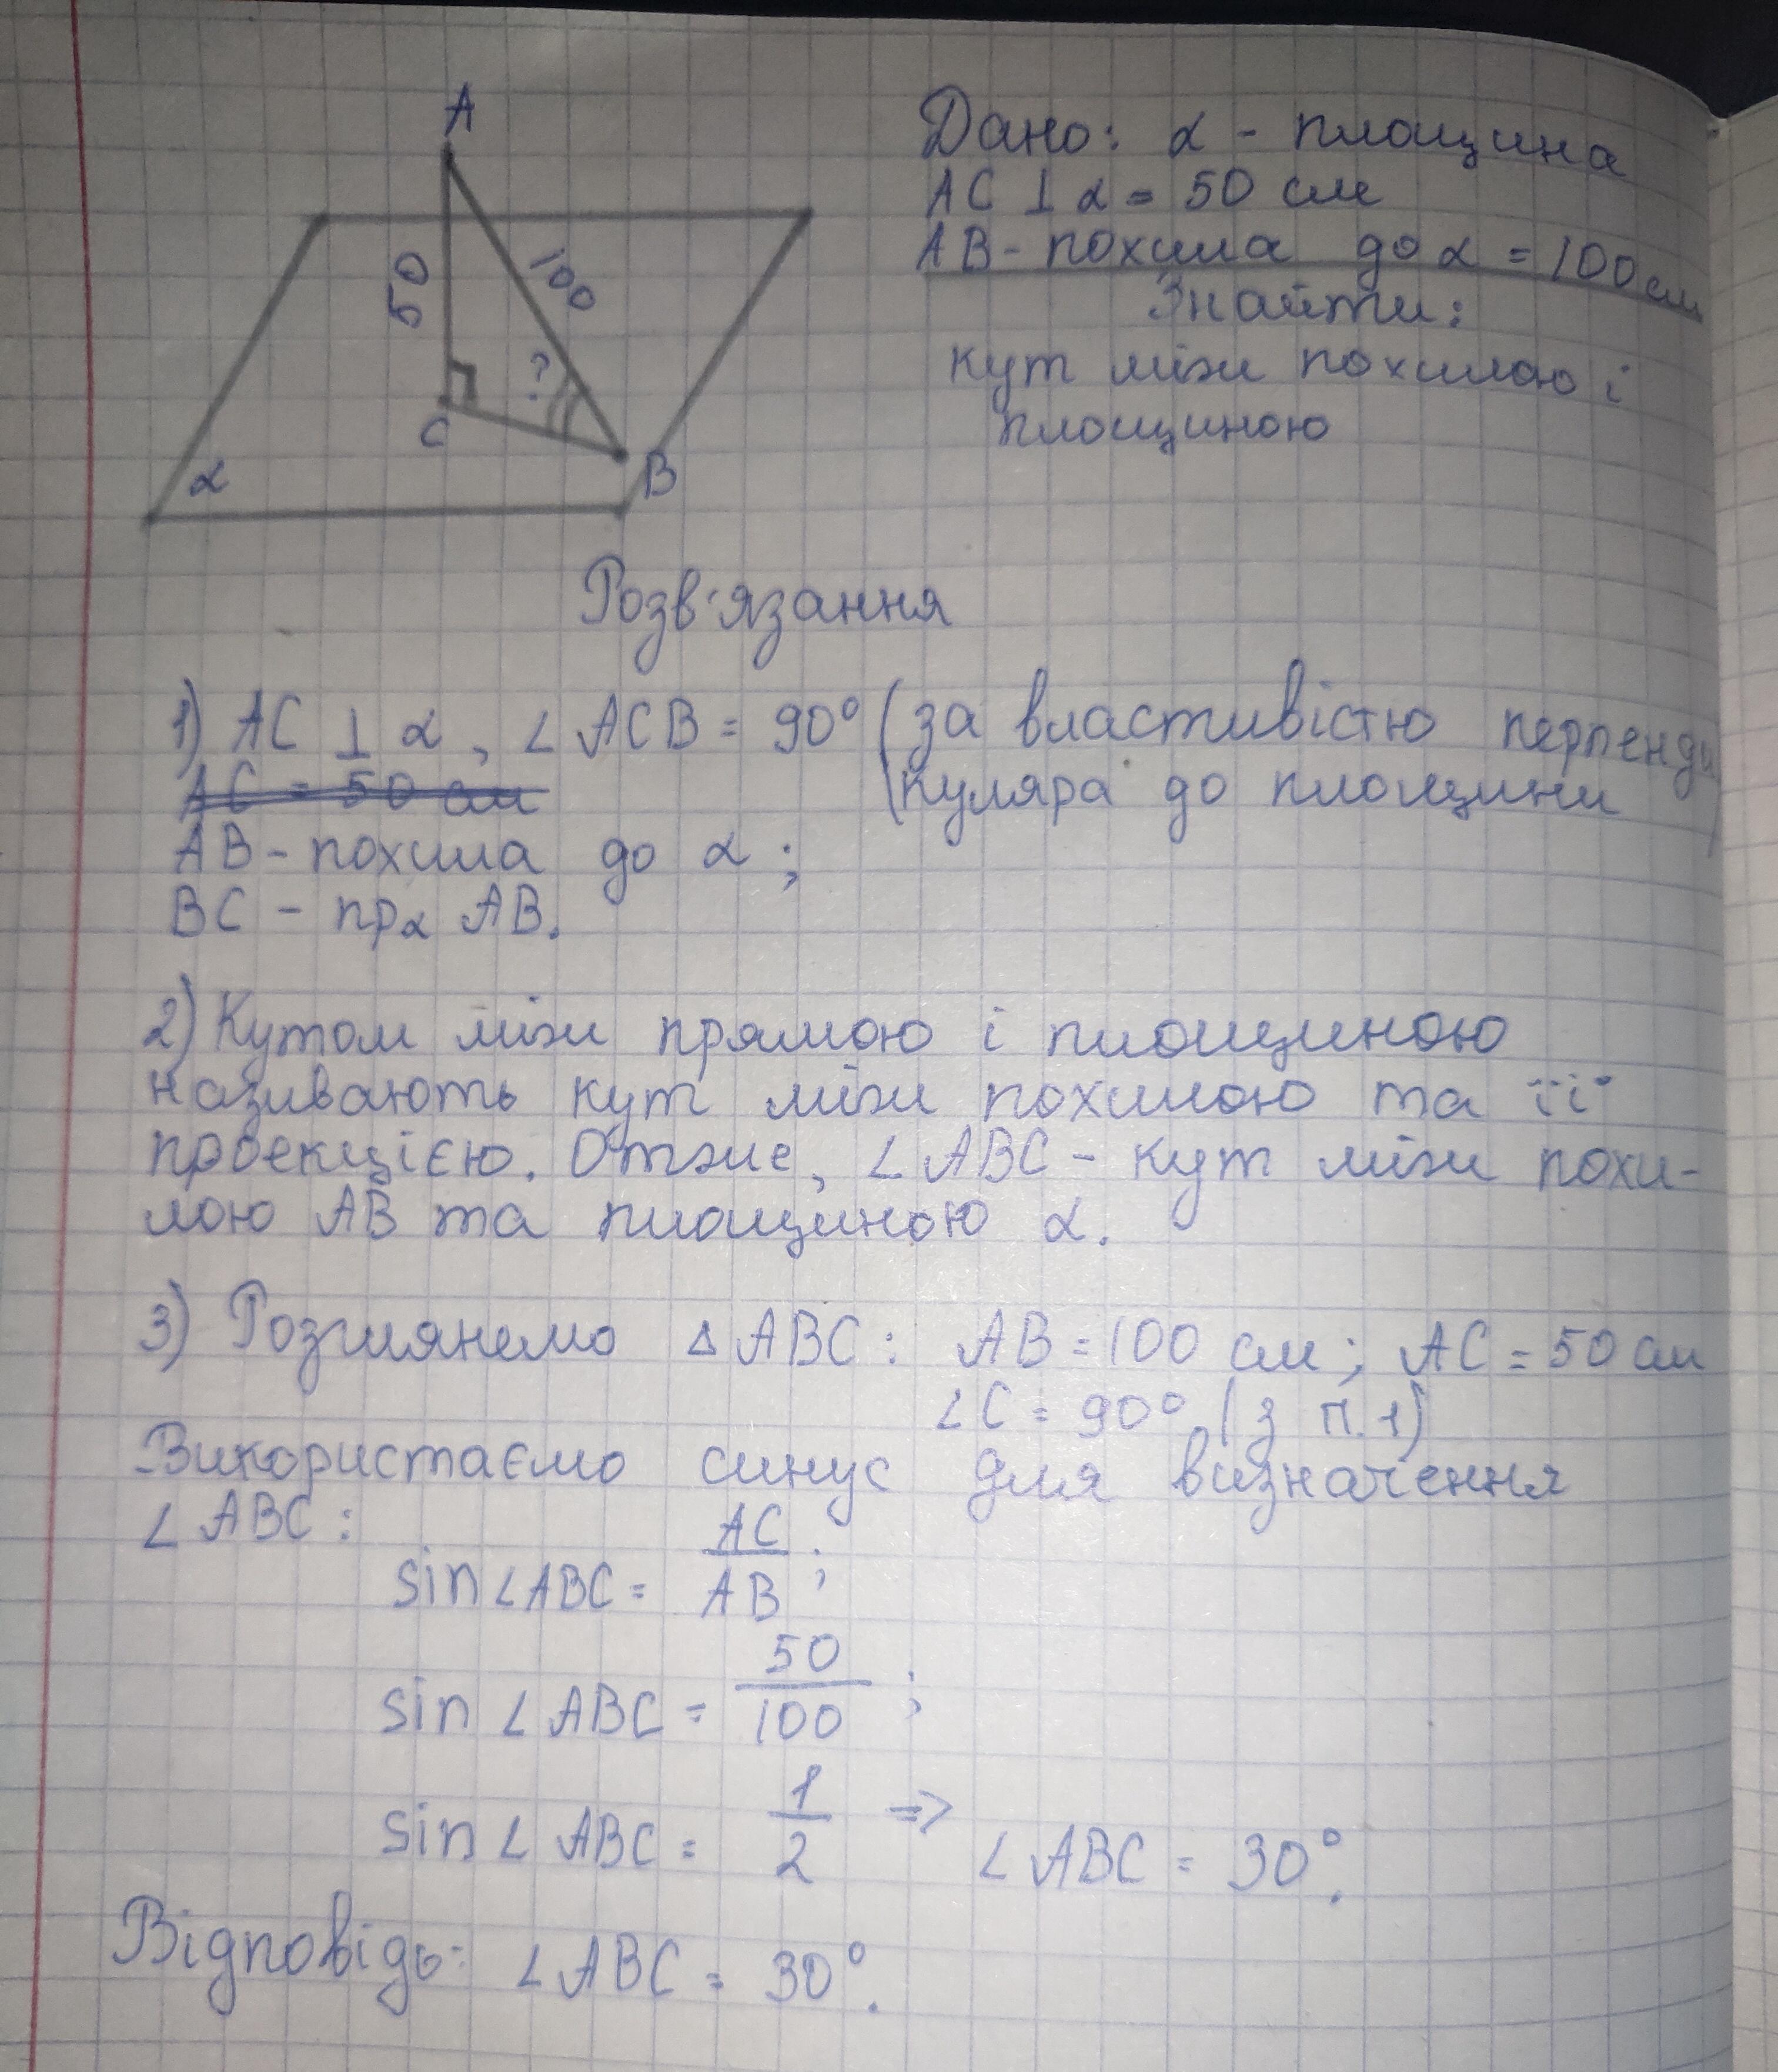 A
50
100
?
C
B
α
Дано: α - площина
AC ⊥ α = 50 см
AB - похила до α = 100 см
Знайти:
кут між похилою і
площиною
Розв'язання
1) AC ⊥ α, ∠ACB = 90° (за властивістю перпенди
куляра до площини)
AC = 50 см
AB - похила до α;
BC - прα AB.
2) Кутом між прямою і площиною
називають кут між похилою та її
проекцією. Отже, ∠ABC - кут між похи-
лою AB та площиною α.
3) Розглянемо △ABC: AB = 100 см; AC = 50 см
∠C = 90° (з п.1)
Використаємо синус для визначення
∠ABC:
sin∠ABC = AC/AB;
sin∠ABC = 50/100;
sin∠ABC = 1/2 => ∠ABC = 30°.
Відповідь: ∠ABC = 30°.